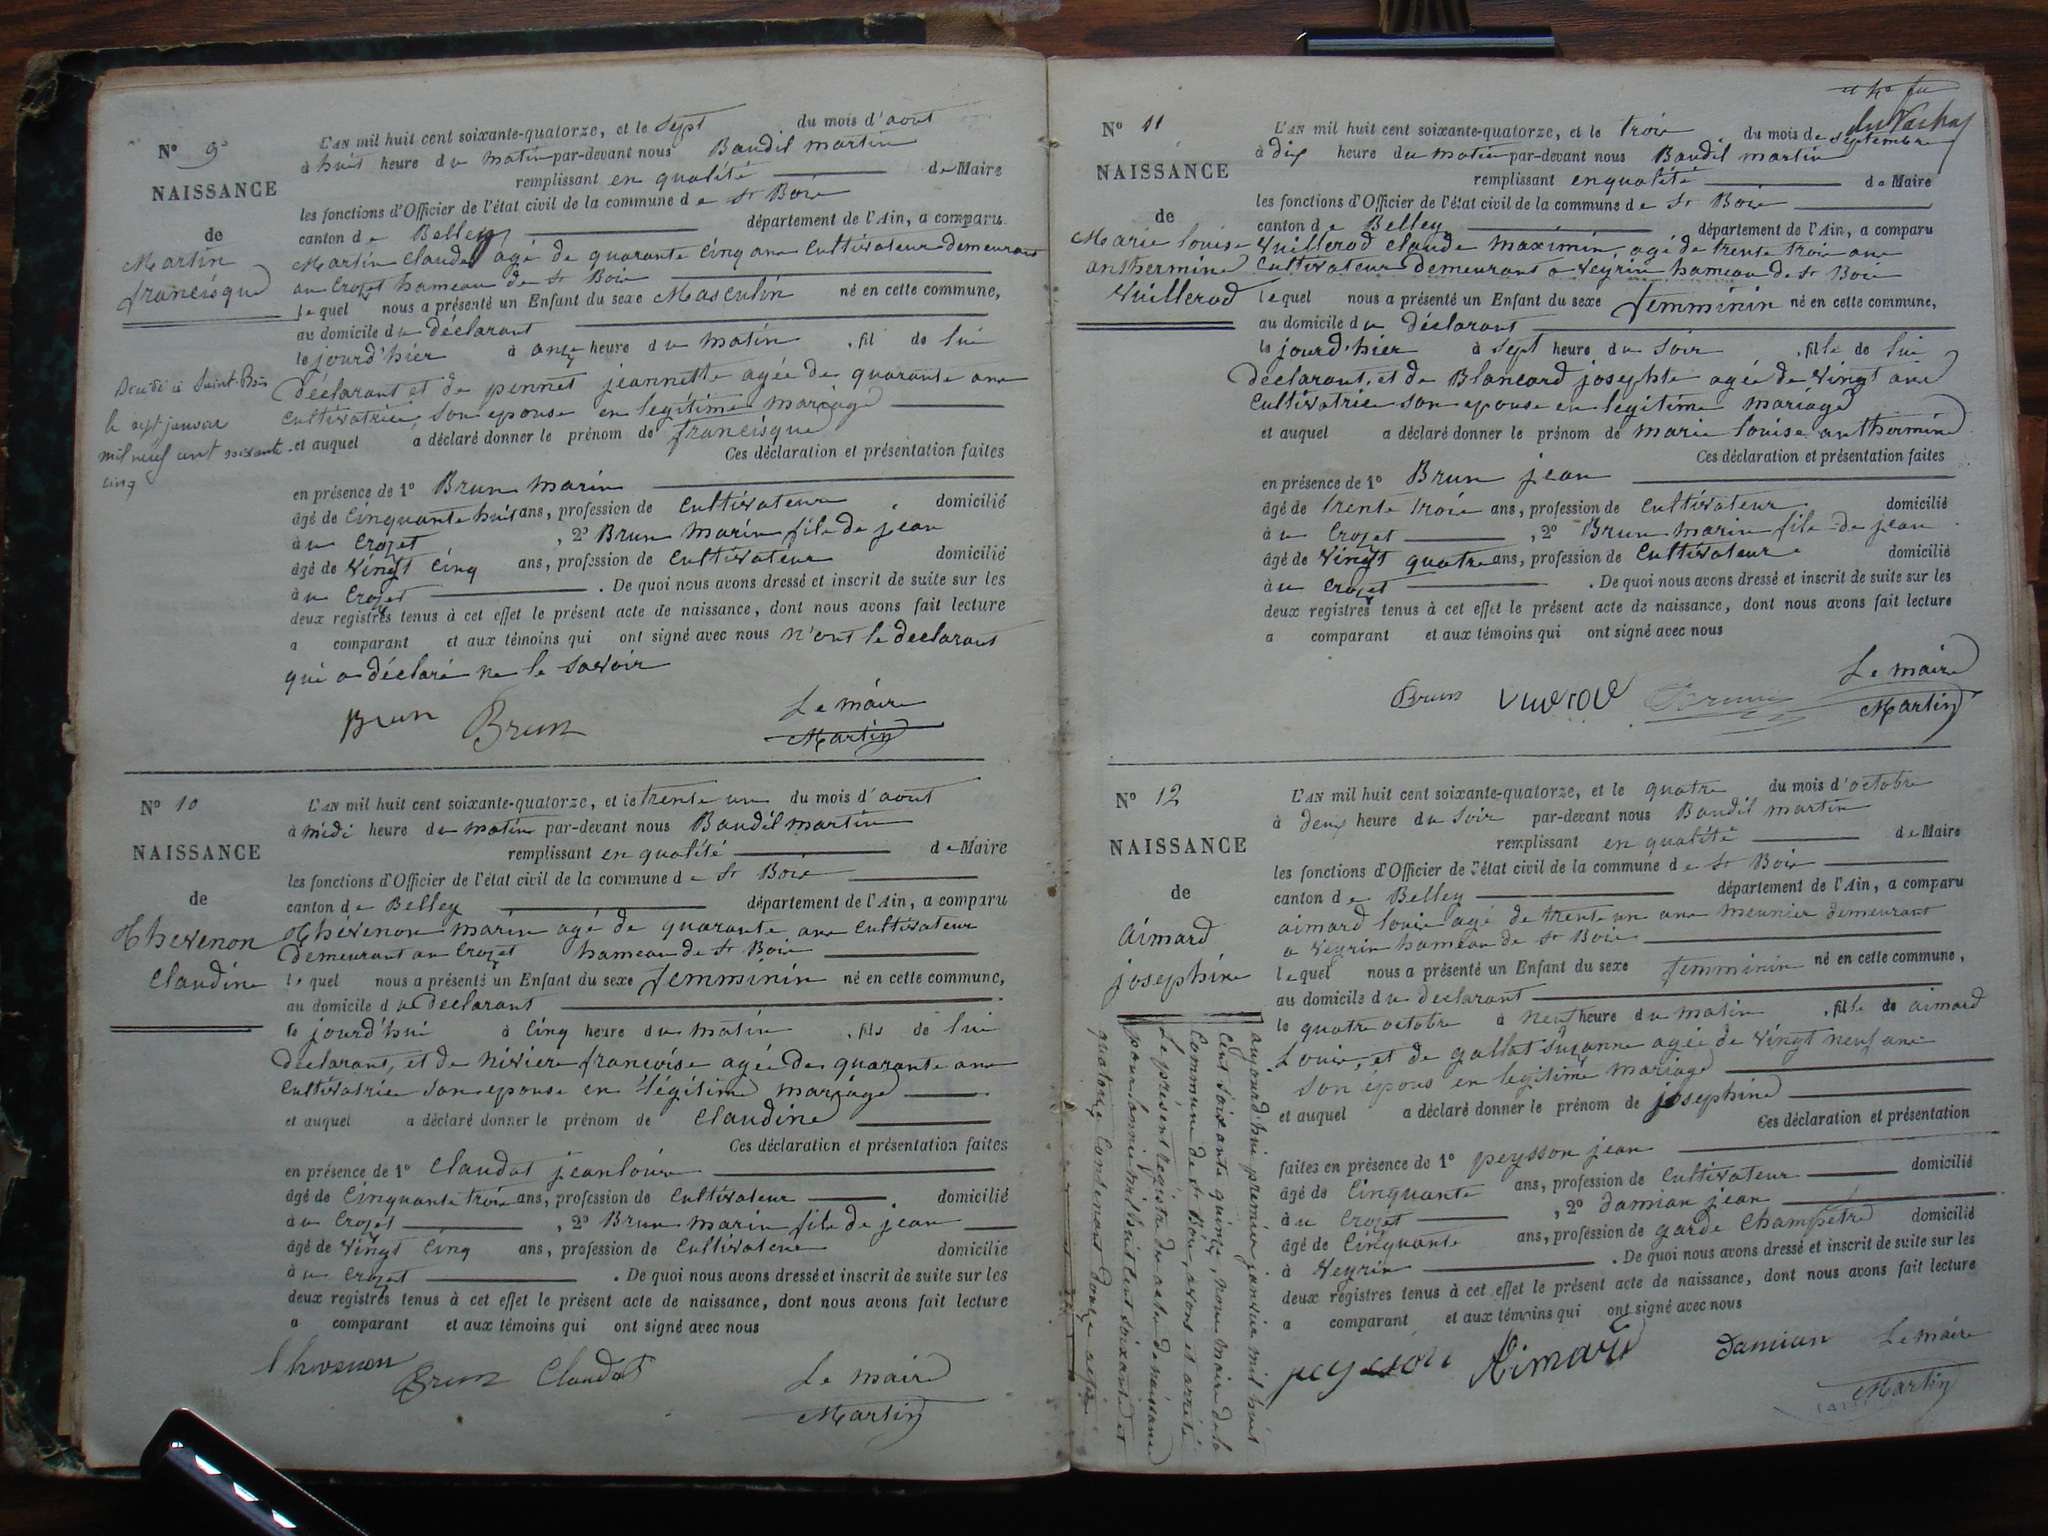 Nº 9
NAISSANCE
de
Martin
francisque
Décédé à Saint Bois
le sept janvier
mil neuf cent soixante
cinq
L'AN mil huit cent soixante-quatorze, et le sept du mois d'aout
à huit heure du matin par-devant nous Baudil martin
remplissant en qualité de Maire
les fonctions d'Officier de l'état civil de la commune de St Bois
canton de Belley département de l'Ain, a comparu
Martin Claude agé de quarante cinq ans Cultivateur demeurant
au Crozet hameau de St Bois
lequel nous a présenté un Enfant du sexe Masculin né en cette commune,
au domicile du déclarant
le jourd'hier à onze heure du matin , fil de lui
déclarant et de pennet jeannette agée de quarante ans
cultivatrice son epouse en legitime mariage
et auquel a déclaré donner le prénom de francisque
Ces déclaration et présentation faites
en présence de 1º Brun marin
âgé de Cinquante huit ans, profession de Cultivateur domicilié
au Crozet , 2º Brun marin fils de jean
âgé de vingt cinq ans, profession de Cultivateur domicilié
au Crozet . De quoi nous avons dressé et inscrit de suite sur les
deux registres tenus à cet effet le présent acte de naissance, dont nous avons fait lecture
a comparant et aux témoins qui ont signé avec nous n'ont le declarant
qui a déclaré ne le savoir
Brun Brun Le maire
Martin
Nº 10
NAISSANCE
de
Thevenon
Claudine
L'AN mil huit cent soixante-quatorze, et le trente un du mois d'aout
à midi heure du matin par-devant nous Baudil martin
remplissant en qualité de Maire
les fonctions d'Officier de l'état civil de la commune de St Bois
canton de Belley département de l'Ain, a comparu
Thévenon marin agé de quarante ans cultivateur
demeurant au Crozet hameau de St Bois
lequel nous a présenté un Enfant du sexe femminin né en cette commune,
au domicile du declarant
le jourd'hui à Cinq heure du matin , fils de lui
déclarant, et de Niviere françoise agée de quarante ans
Cultivatrice son epouse en légitime mariage
et auquel a déclaré donner le prénom de Claudine
Ces déclaration et présentation faites
en présence de 1º Claudot jean louis
âgé de Cinquante trois ans, profession de Cultivateur domicilié
au Crozet , 2º Brun marin fils de jean
âgé de vingt cinq ans, profession de Cultivateur domicilié
au Crozet . De quoi nous avons dressé et inscrit de suite sur les
deux registres tenus à cet effet le présent acte de naissance, dont nous avons fait lecture
a comparant et aux témoins qui ont signé avec nous
Thevenon Brun Claudot Le maire
Martin
Nº 11
NAISSANCE
de
Marie louise
anthermine
Vuillerod
L'AN mil huit cent soixante-quatorze, et le trois du mois de septembre
à dix heure du matin par-devant nous Baudil martin
remplissant en qualité de Maire
les fonctions d'Officier de l'état civil de la commune de St Bois
canton de Belley département de l'Ain, a comparu
Vuillerod claude maximin, agé de trente trois ans
Cultivateur demeurant a Veyrin hameau de St Bois
lequel nous a présenté un Enfant du sexe femminin né en cette commune,
au domicile du déclarant
le jourd'hier à sept heure du soir , fille de lui
déclarant, et de Blancard josephte agée de vingt ans
Cultivatrice son epouse en legitime mariage
et auquel a déclaré donner le prénom de marie louise anthermine
Ces déclaration et présentation faites
en présence de 1º Brun jean
âgé de trente trois ans, profession de cultivateur domicilié
au Crozet , 2º Brun marin fils de jean
âgé de vingt quatre ans, profession de Cultivateur domicilié
au Crozet . De quoi nous avons dressé et inscrit de suite sur les
deux registres tenus à cet effet le présent acte de naissance, dont nous avons fait lecture
a comparant et aux témoins qui ont signé avec nous
Brun Brun Le maire
Martin
Nº 12
NAISSANCE
de
aimard
josephine
L'AN mil huit cent soixante-quatorze, et le quatre du mois d'octobre
à deux heure du soir par-devant nous Baudil martin
remplissant en qualité de Maire
les fonctions d'Officier de l'état civil de la commune de St Bois
canton de Belley département de l'Ain, a comparu
aimard louis agé de trente un ans meunier demeurant
a Veyrin hameau de St Bois
lequel nous a présenté un Enfant du sexe femminin né en cette commune,
au domicile du declarant
le quatre octobre à neuf heure du matin , fille de aimard
Louis, et de gallat suzanne agée de vingt neuf ans
son épous en legitime mariage
et auquel a déclaré donner le prénom de josephine
Ces déclaration et présentation
faites en présence de 1º peysson jean
âgé de Cinquante ans, profession de Cultivateur domicilié
au Crozet , 2º Damian jean
âgé de Cinquante ans, profession de garde Champetre domicilié
à Veyrin . De quoi nous avons dressé et inscrit de suite sur les
deux registres tenus à cet effet le présent acte de naissance, dont nous avons fait lecture
a comparant et aux témoins qui ont signé avec nous
peysson Aimard Damian Le maire
Martin
aujourd'hui premier janvier mil huit
Cent soixante quinze, nous maire de la
Commune de St Bois, avons et arrêté
Le présent registre des actes de naissance
pour l'année mil huit cent soixante et
quatorze Contenant douze actes